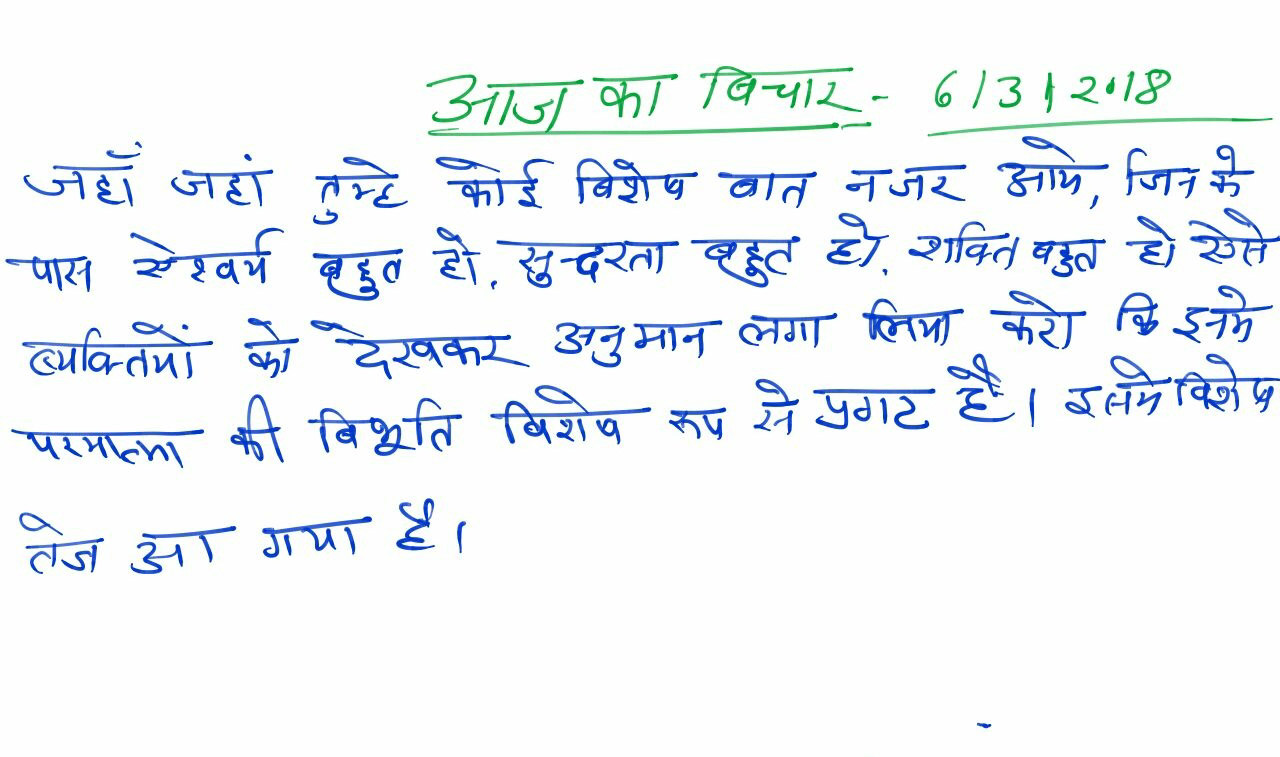 आज का विचार - 6/3/2018
जहाँ जहां तुम्हे कोई विशेष बात नजर आये, जिनके
पास ऐश्वर्य बहुत हो, सुन्दरता बहुत हो, शक्ति बहुत हो ऐसे
व्यक्तियों को देखकर अनुमान लगा लिया करो कि इनमे
परमात्मा की विभूति विशेष रूप से प्रगट है। इनमे विशेष
तेज आ गया है।